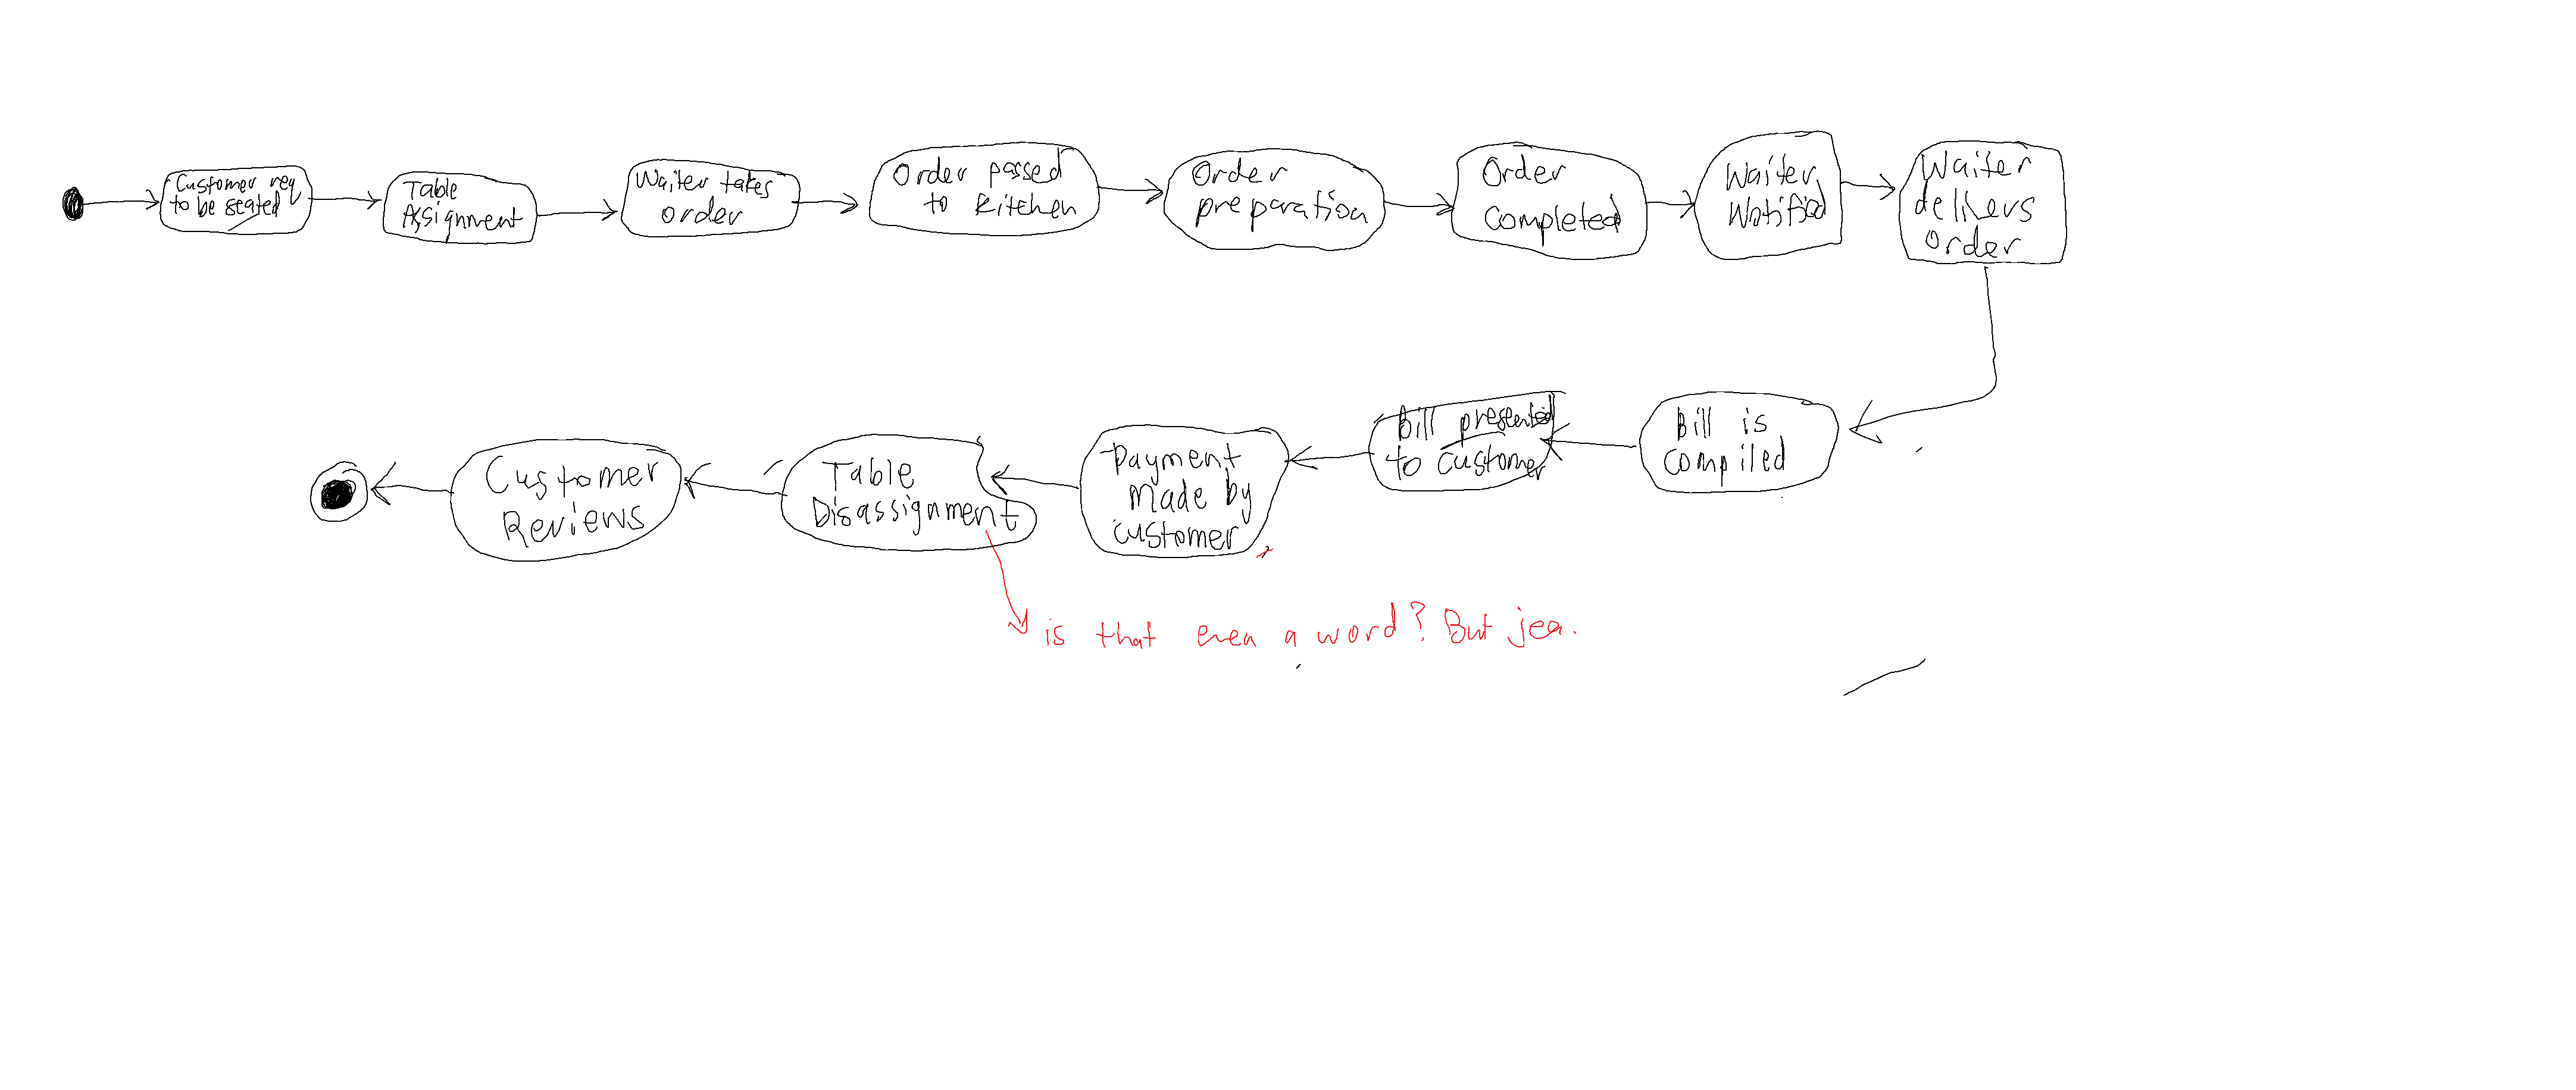 Customer req
to be seated
Table
Assignment
Waiter takes
order
Order passed
to kitchen
Order
preparation
Order
completed
Waiter
Notified
Waiter
delivers
order
Bill is
compiled
Bill presented
to customer
payment
made by
customer
Table
Disassignment
Customer
Reviews
is that even a word? But jea.